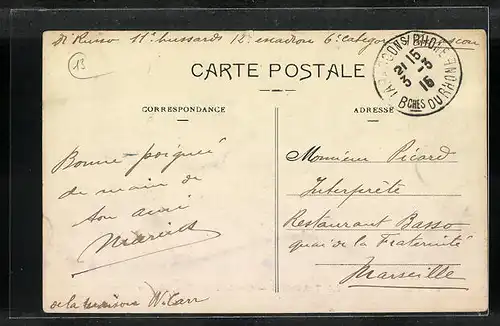 Di Russo 11e hussards 12e escadron 6e categorie Tarascon
13
CARTE POSTALE
TARASCON S/ RHONE
21 15
3 - 3
16
BCHES DU RHONE
CORRESPONDANCE
ADRESSE
Bonne poignée
de main de
ton ami
Monsieur Picard
Interprète
Restaurant Basso
quai de la Fraternité
Marseille
de la maison W. Carr